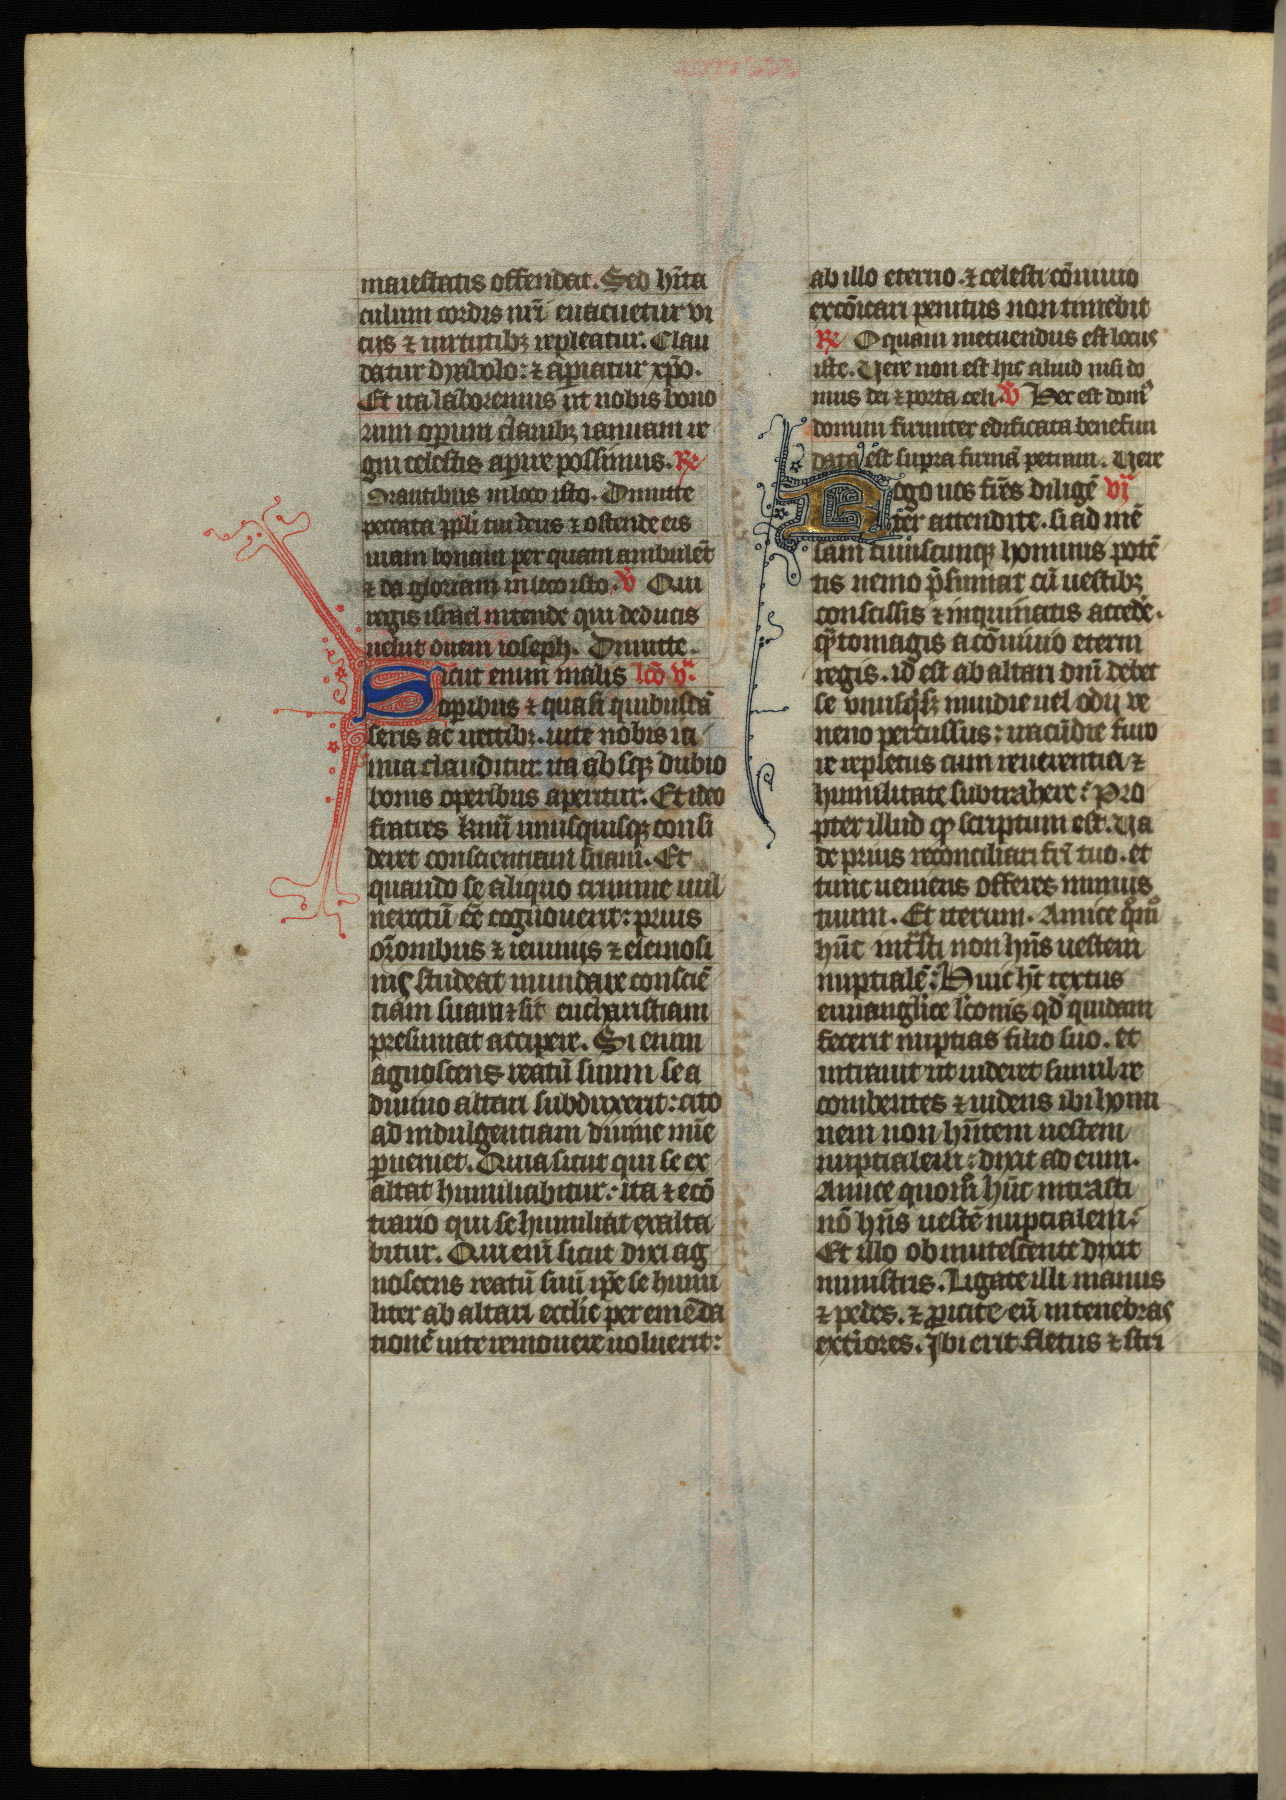 maiestatis offendat. Sed hita
culum cordis nri euacuetur vi
ciis ⁊ uirtutibꝫ repleatur. Clau
datur dyabolo: ⁊ apiatur xpo.
Et ita laboremus ut nobis bono
rum operum clauibꝫ ianuam re
gni celestis apire possimus. R
Orantibus in loco isto. Dimitte
peccata ppli tui deus ⁊ ostende eis
uiam bonam per quam ambulēt
⁊ da gloriam in loco isto. V Qui
regis israel intende qui deducis
uelut ouem ioseph. Dimitte.
Sicut enim malis lcō va
opibus ⁊ quasi quibusdā
seris ac uectibꝫ. uite nobis ia
nua clauditur: ita absqꝫ dubio
bonis operibus aperitur. Et ideo
fratres kmi unusquisqꝫ consi
deret conscientiam suam. Et
quando se aliquo crimine uul
neratū ēē cognouerit: prius
orōnibus ⁊ ieiuniis ⁊ elemosi
nis studeat mundare consciē
tiam suam ⁊ sic eucharistiam
presumat accipere. Si enim
agnoscens reatū suum se a
diuino altari subduxerit: cito
ad indulgentiam diuine mie
pueniet. Quia sicut qui se ex
altat humiliabitur: ita ⁊ ecō
trario qui se humiliat exalta
bitur. Qui eni sicut dixi ag
noscens reatū suū ipe se humi
liter ab altari ecclie per emēda
tionē uite remouere uoluerit:
ab illo eterno ⁊ celesti cōuiuio
excōicari penitus non timebit
R O quam metuendus est locus
iste. Uere non est hic aliud nisi do
mus dei ⁊ porta celi. V Hec est dom9
domini firmiter edificata bene fun
data est supra firmā petram. Uere
Rogo uos fres diligē vi
ter attendite. si ad mē
sam cuiuscunqꝫ hominis potē
tis nemo psumat cū uestibꝫ
conscissis ⁊ inquinatis accede.
qto magis a cōuiuio eterni
regis. id est ab altari dni debet
se unusqsqꝫ mundie uel odii ve
neno percussus: iracūdie furo
re repletus cum reuerentia ⁊
humilitate subtrahere: Pro
pter illud qd scriptum est. Ua
de prius reconciliari fri tuo. et
tunc ueniens offeres munus
tuum. Et iterum. Amice qmo
huc intrasti non hns uestem
nuptialē: Huic ht textus
euuanglice lconis qd quidam
fecerit nuptias filio suo. et
intrauit ut uideret simul re
cumbentes ⁊ uidens ibi homi
nem non hntem uestem
nuptialem: dixit ad eum.
Amice quom huc intrasti
nō hns uestē nuptialem:
Et illo obmutescente dixit
ministris. Ligate illi manus
⁊ pedes. ⁊ proicite eū in tenebras
exteriores. Ibi erit fletus ⁊ stri